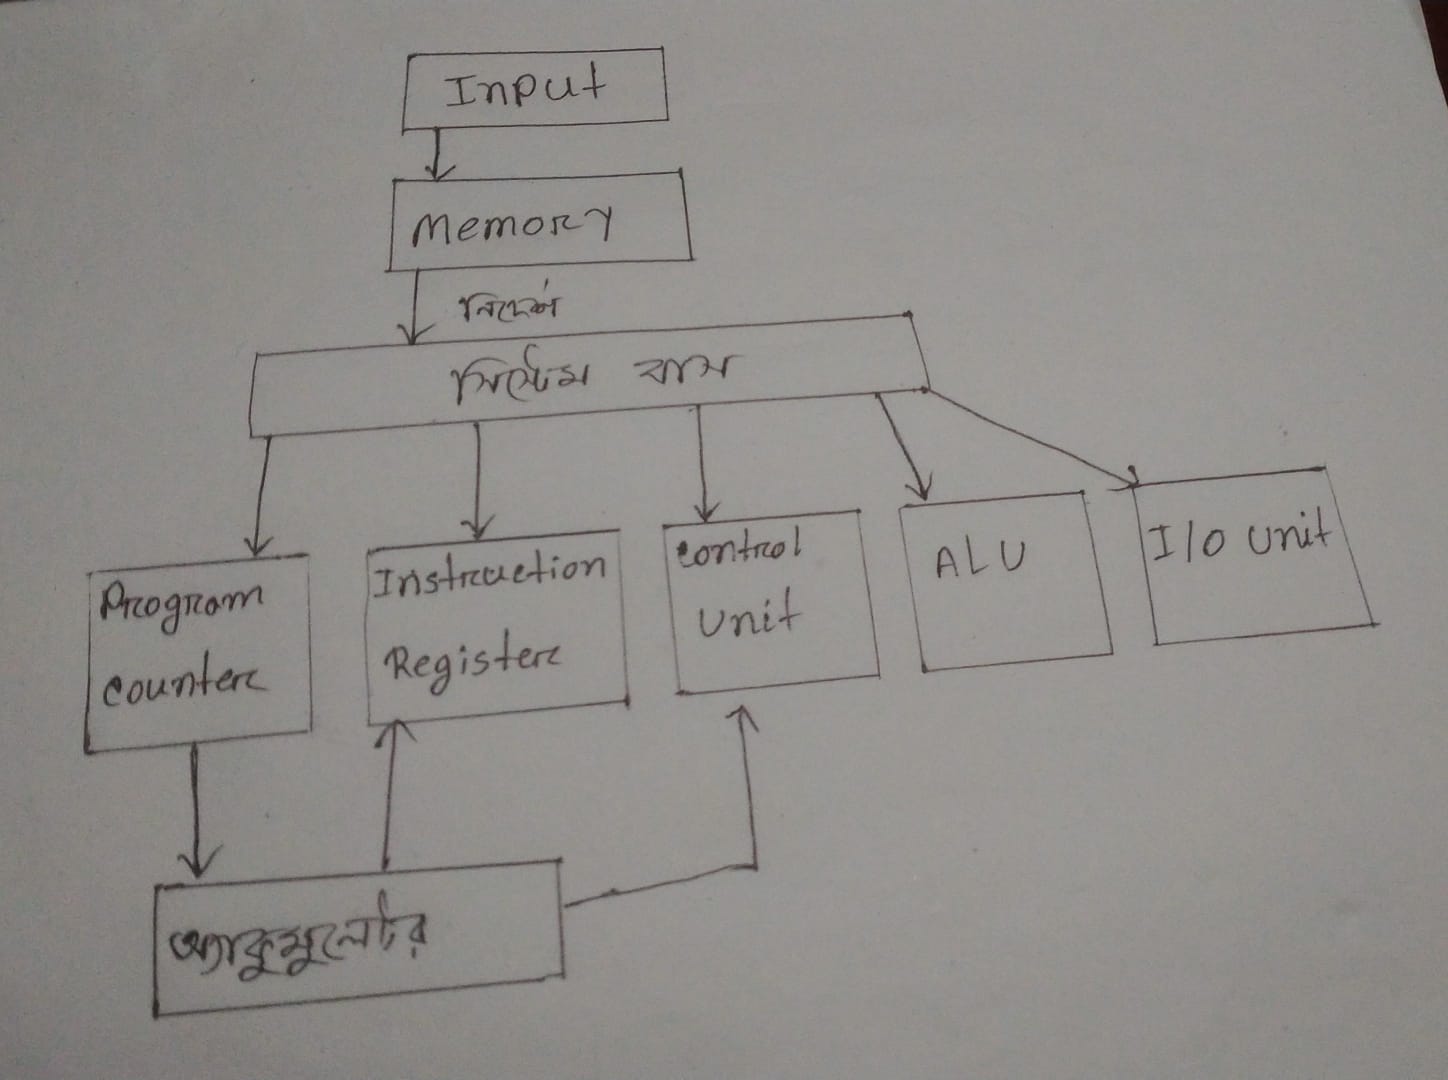 Input
Memory
নির্দেশ
সিস্টেম বাস
Program
counter
Instruction
Register
control
unit
ALU
I/O unit
অ্যাকুমুলেটর